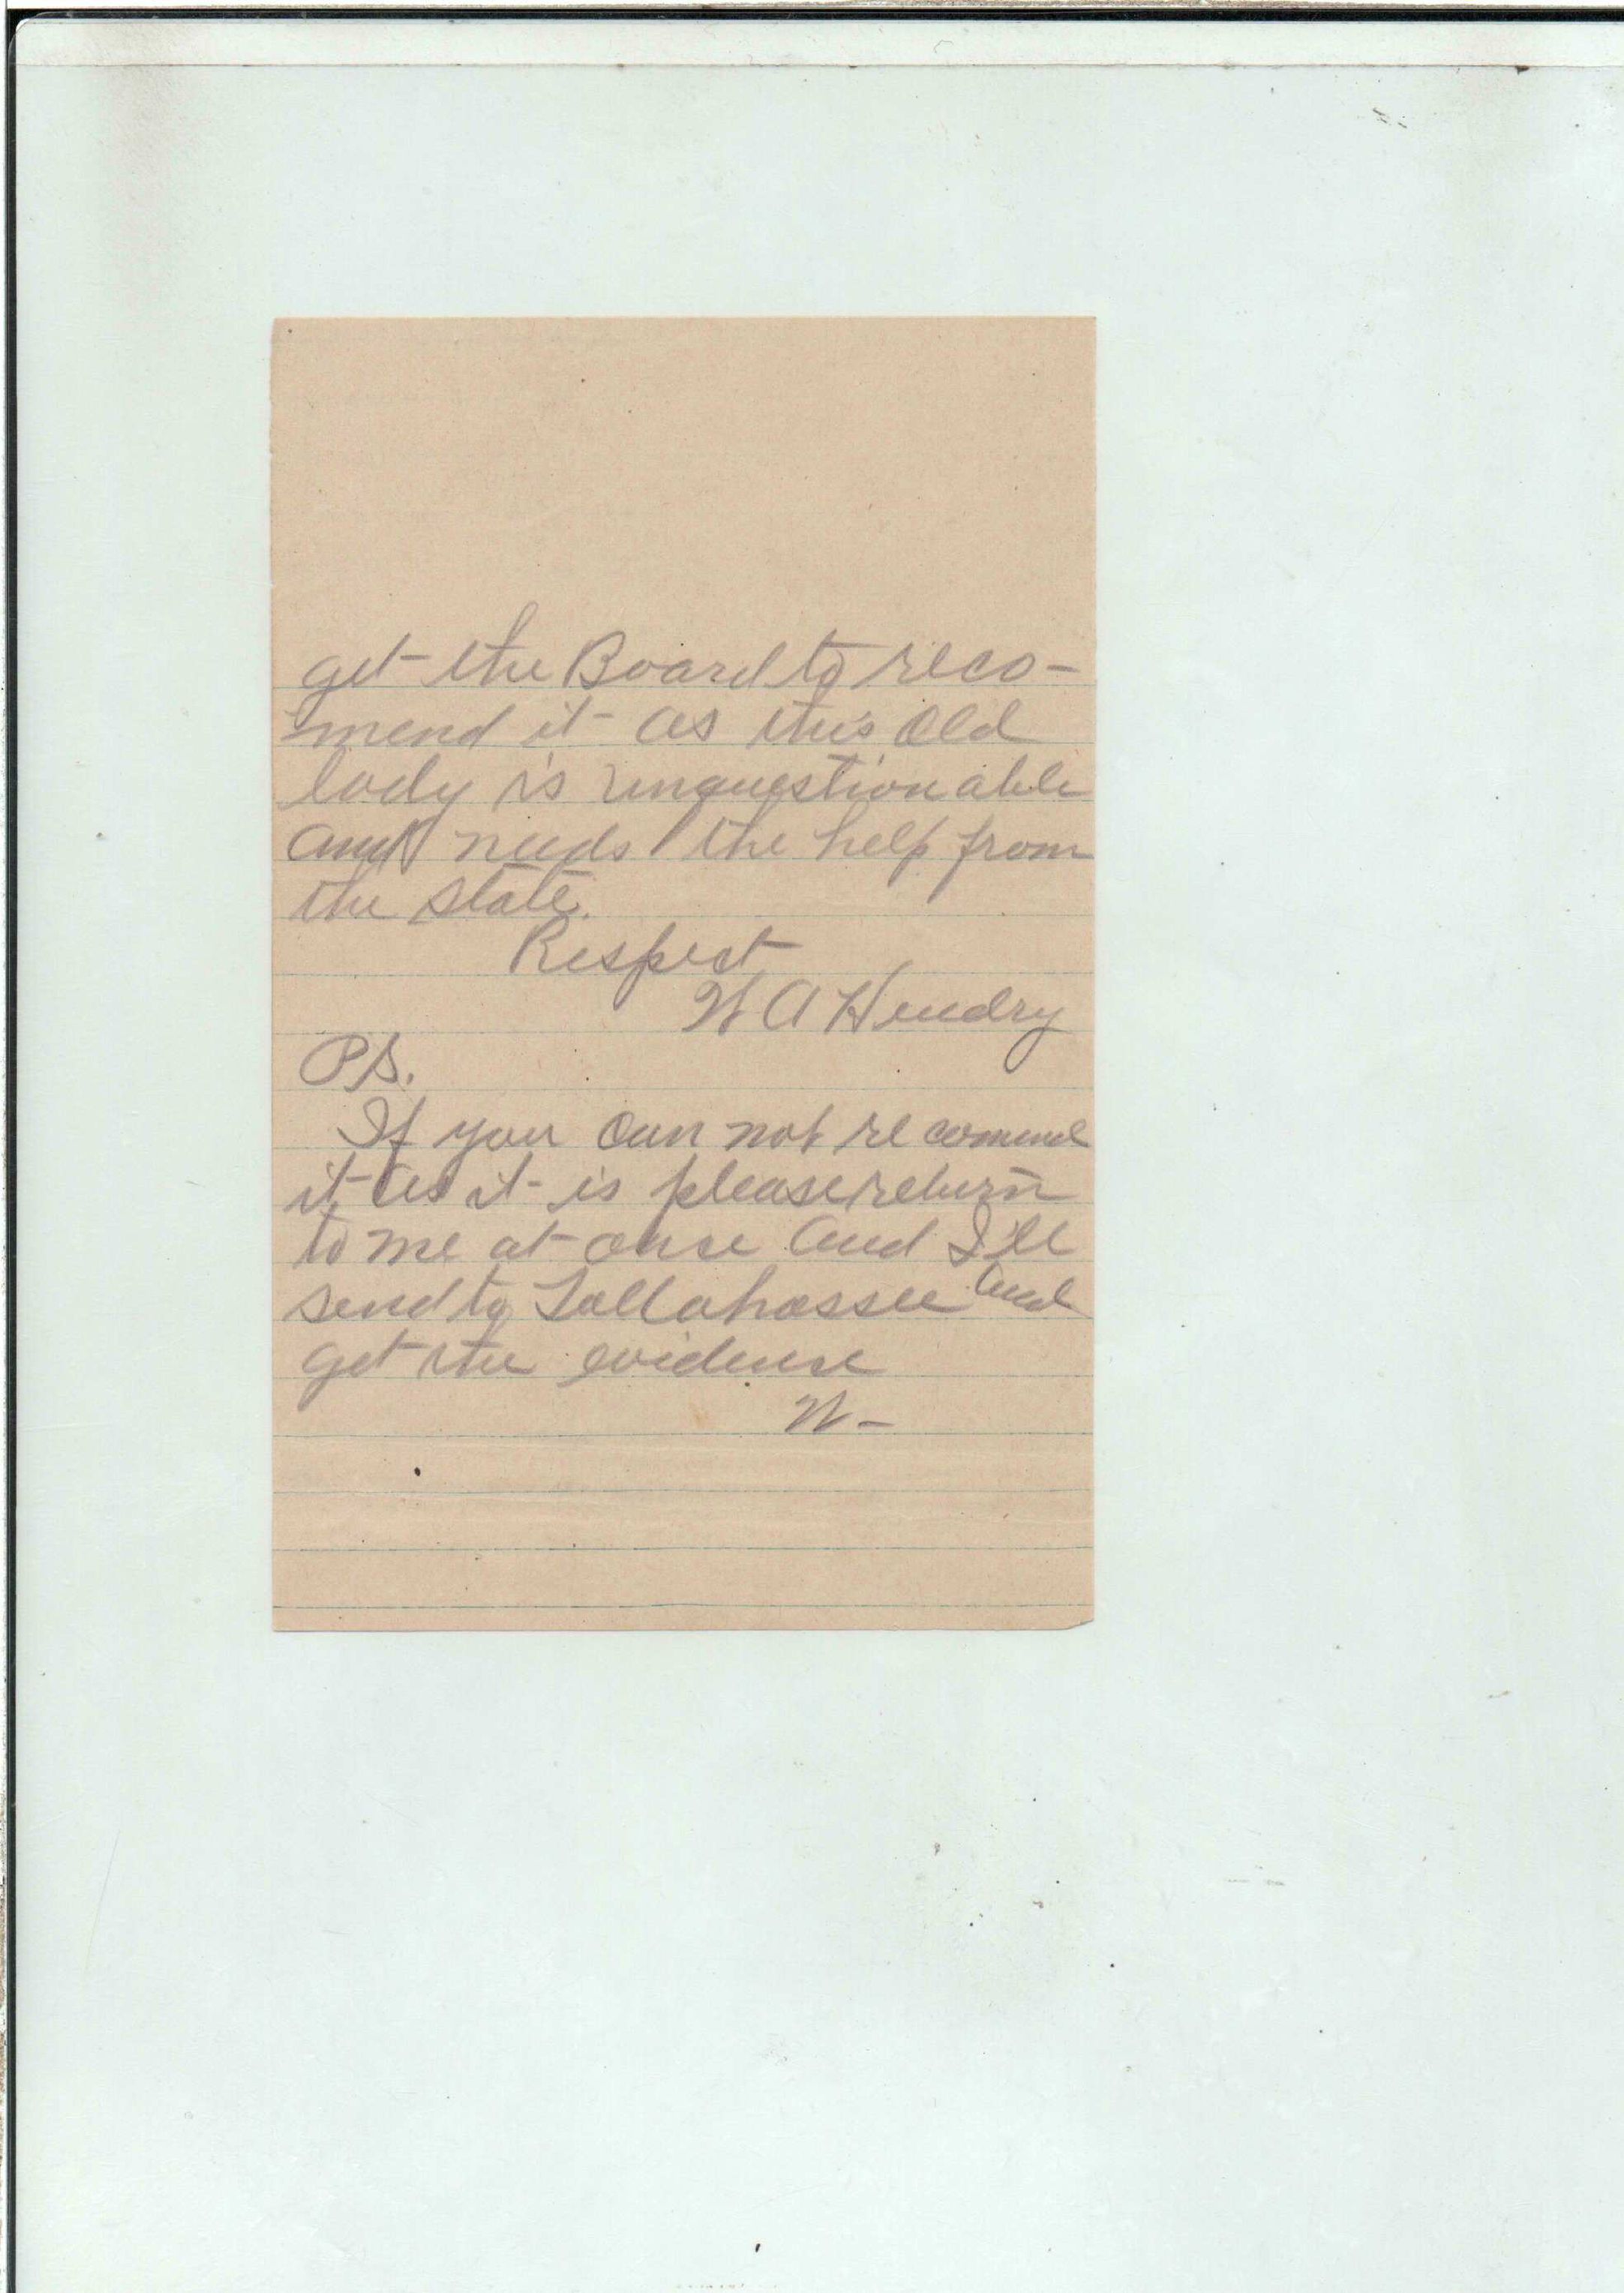 get the Board to reco-
mend it as this old
lady is unquestionable
and needs the help from
the state.
Respect
W A Hendry
P.S.
If you can not recomend
it as it is please return
to me at onse and I'll
send to Tallahassee and
get the evidense
W-